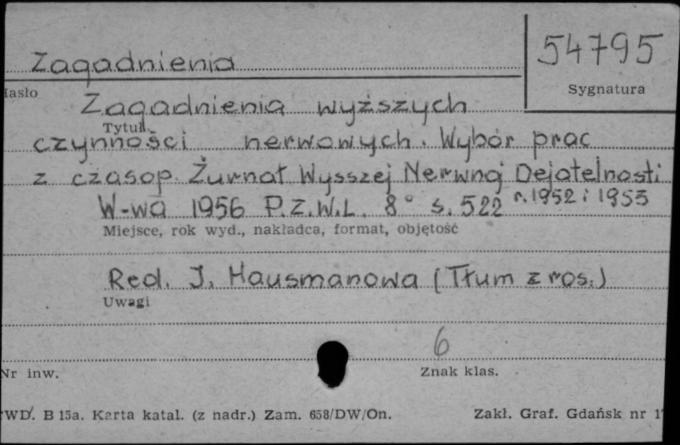 Zagadnienia
54795
Hasło
Sygnatura
Zagadnienia wyższych
Tytuł
czynności nerwowych. Wybór prac
z czasop. Żurnał Wysszej Nerwnoj Dejatelnosti
W-wa 1956 P.Z.W.L. 8° s. 522 r. 1952 i 1953
Miejsce, rok wyd., nakładca, format, objętość
Red. J. Hausmanowa (Tłum z ros.)
Uwagi
6
Nr inw.
Znak klas.
PWD. B 15a. Karta katal. (z nadr.) Zam. 658/DW/On.
Zakł. Graf. Gdańsk nr 1